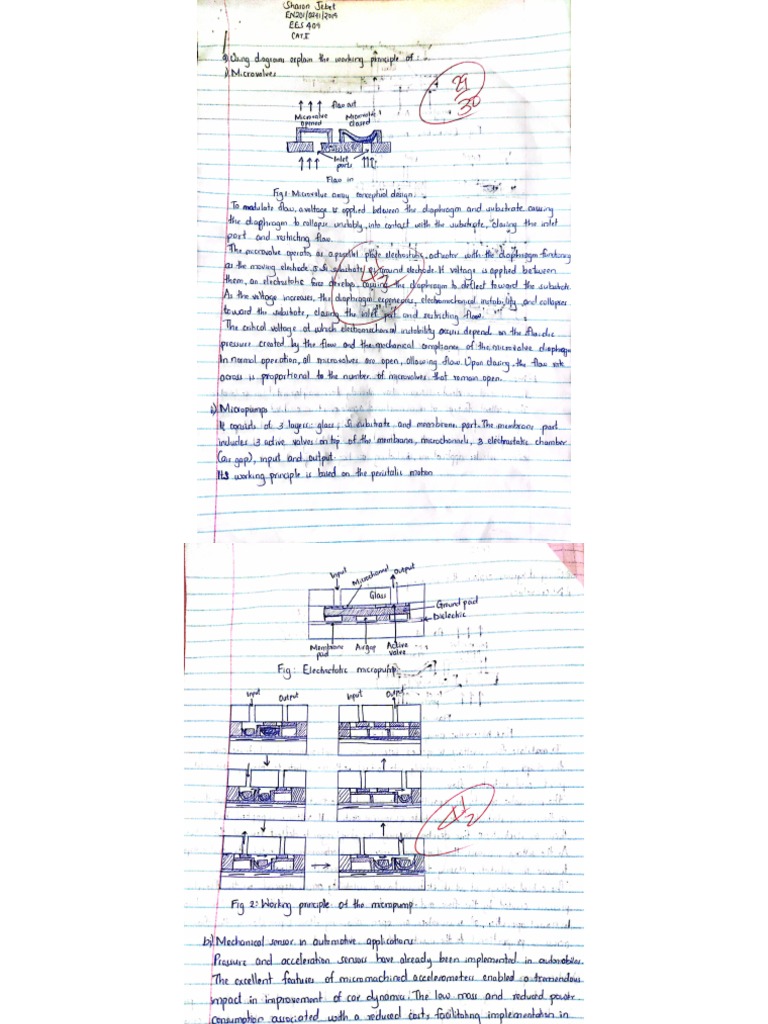 Sharon Jebet
EN201/0241/2019
EES 409
CAT I
a) Using diagrams explain the working principle of
i) Microvalves
29
30
Flow out
Microvalve opened
Microvalve closed
Inlet ports
Flow in
Fig 1: Microvalve array conceptual design
To modulate flow, a voltage is applied between the diaphragm and substrate causing
the diaphragm to collapse unstably, into contact with the substrate, closing the inlet
port and restricting flow.
The microvalve operates as a parallel plate electrostatic actuator with the diaphragm functioning
as the moving electrode & Si substrate ground electrode. If voltage is applied between
them, an electrostatic force develops, causing the diaphragm to deflect toward the substrate.
As the voltage increases, the diaphragm experiences, electromechanical instability and collapses
toward the substrate, closing the inlet port and restricting flow.
The critical voltage at which electromechanical instability occurs depend on the fluidic
pressure created by the flow and the mechanical compliance of the microvalve diaphragm
In normal operation, all microvalves are open, allowing flow. Upon closing, the flow rate
across is proportional to the number of microvalves that remain open.
4½
ii) Micropumps
It consists of 3 layers: glass, Si substrate and membrane part. The membrane part
includes 3 active valves on top of the membrane, microchannels, 3 electrostatic chamber
(air gap), input and output.
Its working principle is based on the peristaltic motion
Input
Microchannel
Output
Glass
Ground pad
Dielectric
Membrane pad
Airgap
Active valve
Fig: Electrostatic micropump
Input
Output
Input
Output
4½
Fig 2: Working principle of the micropump
b) Mechanical sensor in automotive applications
Pressure and acceleration sensors have already been implemented in automobiles.
The excellent features of micromachined accelerometers enabled a tremendous
impact in improvement of car dynamic. The low mass and reduced power
consumption associated with a reduced cost, facilitating implementation in